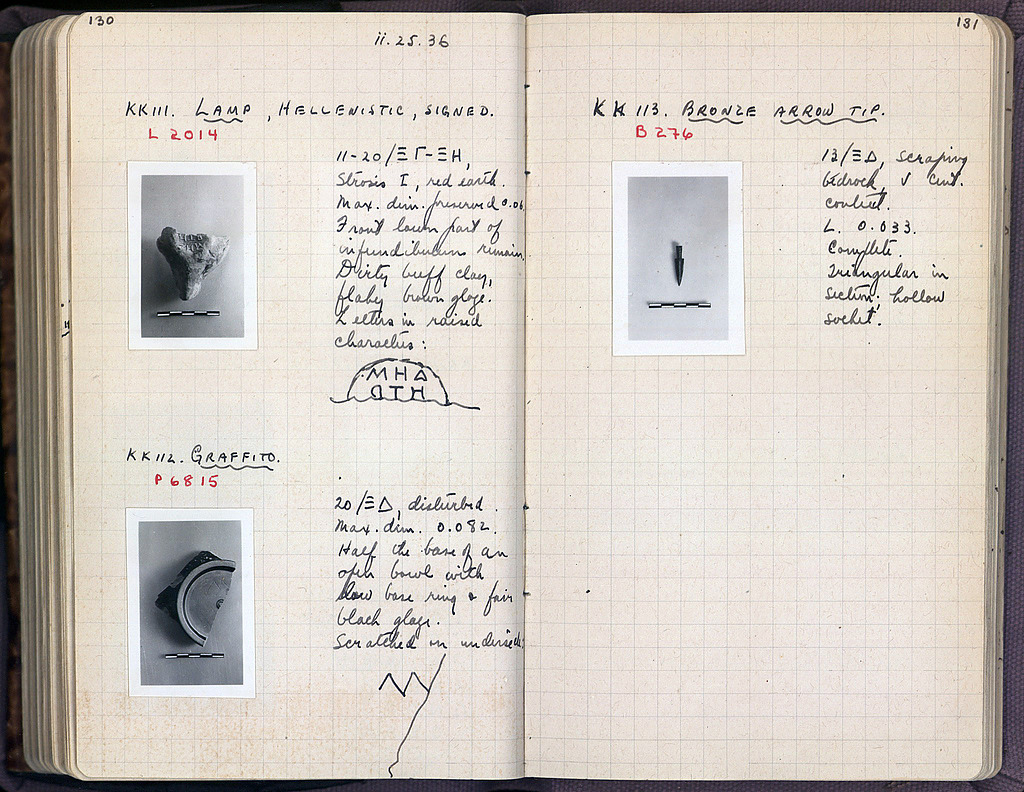 130
ii. 25. 36
KK 111. LAMP, HELLENISTIC, SIGNED.
L 2014
11-20/ΞΓ-ΞΗ,
Strosis I, red earth.
Max. dim. preserved 0.06
Front lower part of
infundibulum remains.
Dirty buff clay,
flaky brown glaze.
Letters in raised
characters:
ΜΗΔ
ΩΤΗ
KK 112. GRAFFITO.
P 6815
20/ΞΔ, disturbed.
Max. dim. 0.082.
Half the base of an
open bowl with
low base ring & fair
black glaze.
Scratched on underside:
131
KK 113. BRONZE ARROW TIP.
B 276
13/ΞΔ, scraping
bedrock, V cent.
context.
L. 0.033.
Complete.
Triangular in
section; hollow
socket.